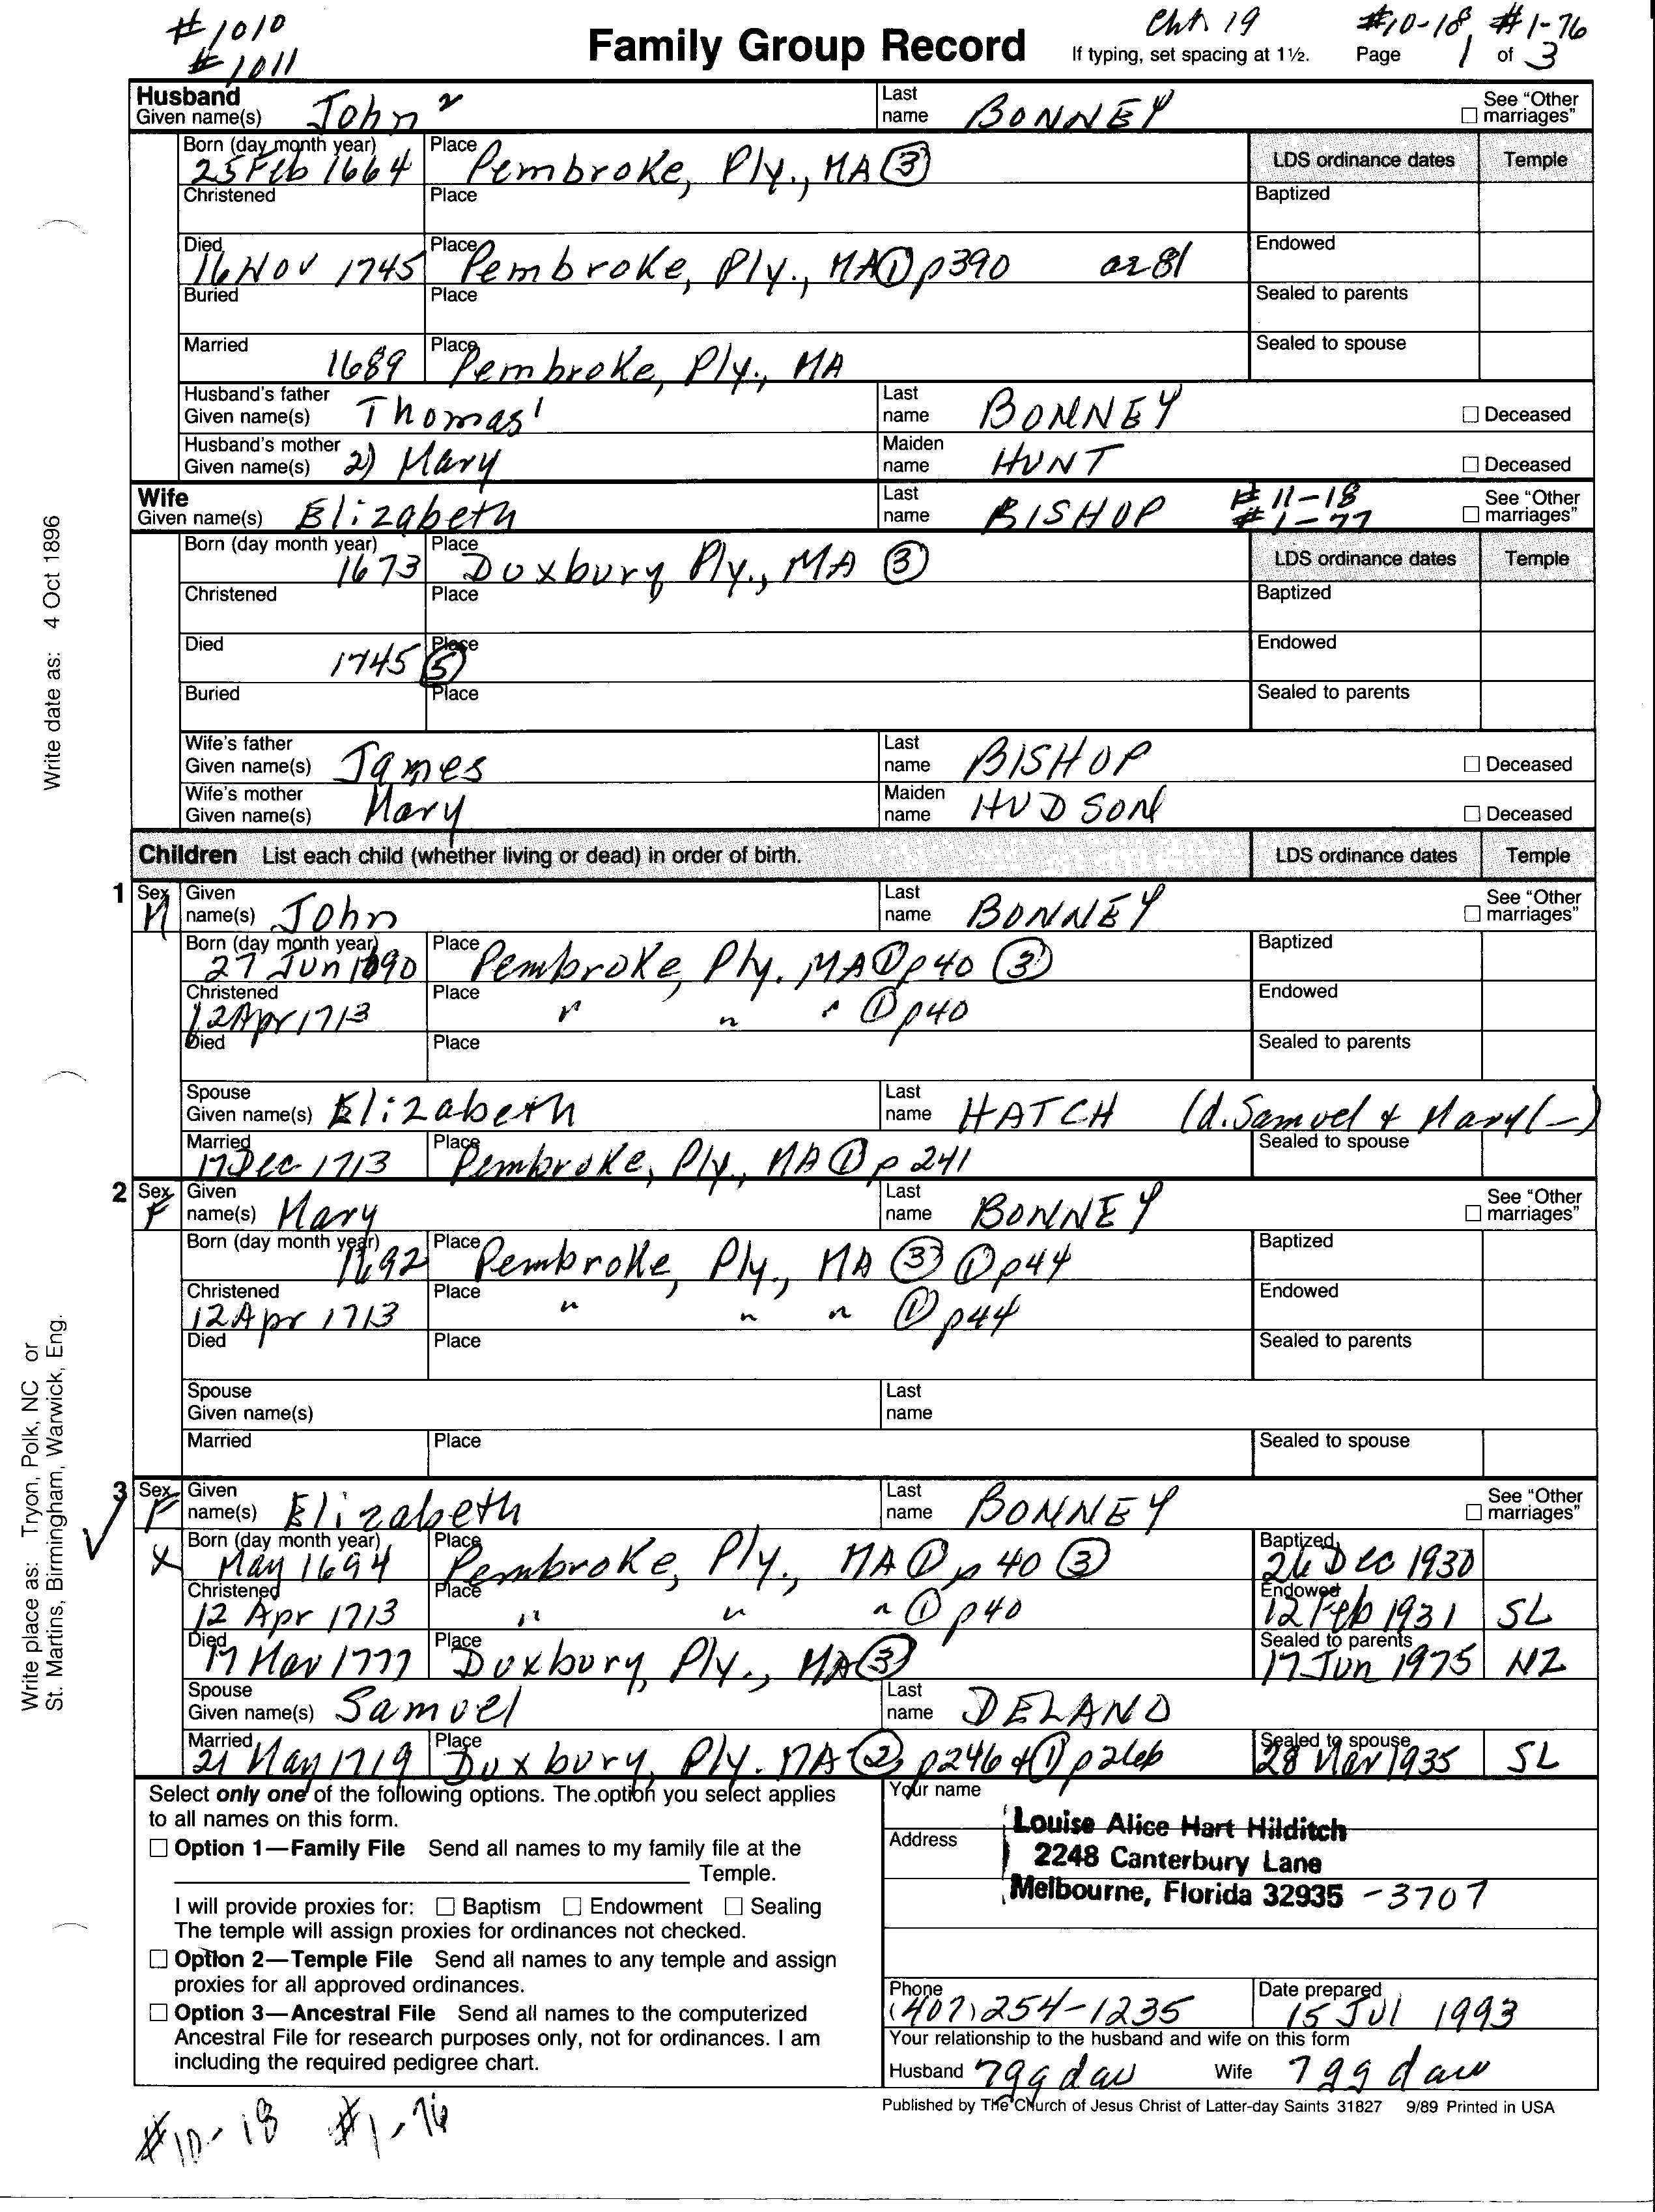 #1010 Cht 19 #10-18, #1-76
#1011 Family Group Record If typing, set spacing at 1½. Page 1 of 3
Husband Given name(s) John² Last name BONNEY ☐ See "Other marriages"
Born (day month year) 25 Feb 1664 Place Pembroke, Ply., MA ③ LDS ordinance dates Temple
Christened Place Baptized
Died 16 Nov 1745 Place Pembroke, Ply., MA ① p390 ae 81 Endowed
Buried Place Sealed to parents
Married 1689 Place Pembroke, Ply., MA Sealed to spouse
Husband's father Given name(s) Thomas¹ Last name BONNEY ☐ Deceased
Husband's mother Given name(s) 2) Mary Maiden name HUNT ☐ Deceased
Wife Given name(s) Elizabeth Last name BISHOP #11-18 #1-77 ☐ See "Other marriages"
Born (day month year) 1673 Place Duxbury Ply., MA ③ LDS ordinance dates Temple
Christened Place Baptized
Died 1745 ⑤ Place Endowed
Buried Place Sealed to parents
Wife's father Given name(s) James Last name BISHOP ☐ Deceased
Wife's mother Given name(s) Mary Maiden name HUDSON ☐ Deceased
Children List each child (whether living or dead) in order of birth. LDS ordinance dates Temple
1 Sex M Given name(s) John Last name BONNEY ☐ See "Other marriages"
Born (day month year) 27 Jun 1690 Place Pembroke, Ply. MA ① p40 ③ Baptized
Christened 12 Apr 1713 Place " " " ① p40 Endowed
Died Place Sealed to parents
Spouse Given name(s) Elizabeth Last name HATCH (d. Samuel & Mary (-)
Married 17 Dec 1713 Place Pembroke, Ply., MA ① p 241 Sealed to spouse
2 Sex F Given name(s) Mary Last name BONNEY ☐ See "Other marriages"
Born (day month year) 1692 Place Pembroke, Ply., MA ③ ① p44 Baptized
Christened 12 Apr 1713 Place " " " ① p44 Endowed
Died Place Sealed to parents
Spouse Given name(s) Last name
Married Place Sealed to spouse
3 Sex F Given name(s) Elizabeth Last name BONNEY ☐ See "Other marriages"
✓ X Born (day month year) May 1694 Place Pembroke, Ply., MA ① p 40 ③ Baptized 26 Dec 1930
Christened 12 Apr 1713 Place " " " ① p40 Endowed 12 Feb 1931 SL
Died 17 Mar 1777 Place Duxbury, Ply., MA ③ Sealed to parents 17 Jun 1975 NZ
Spouse Given name(s) Samuel Last name DELANO
Married 21 May 1719 Place Duxbury, Ply. MA ② p246 & ① p266 Sealed to spouse 28 Mar 1935 SL
Select only one of the following options. The option you select applies
to all names on this form.
☐ Option 1—Family File Send all names to my family file at the
Temple.
I will provide proxies for: ☐ Baptism ☐ Endowment ☐ Sealing
The temple will assign proxies for ordinances not checked.
☐ Option 2—Temple File Send all names to any temple and assign
proxies for all approved ordinances.
☐ Option 3—Ancestral File Send all names to the computerized
Ancestral File for research purposes only, not for ordinances. I am
including the required pedigree chart.
Your name Louise Alice Hart Hilditch
Address 2248 Canterbury Lane
Melbourne, Florida 32935 -3707
Phone (407) 254-1235 Date prepared 15 Jul 1993
Your relationship to the husband and wife on this form
Husband 7ggdau Wife 7ggdau
Published by The Church of Jesus Christ of Latter-day Saints 31827 9/89 Printed in USA
#10-18 #1-76
Write date as: 4 Oct 1896
Write place as: Tryon, Polk, NC or
St. Martins, Birmingham, Warwick, Eng.